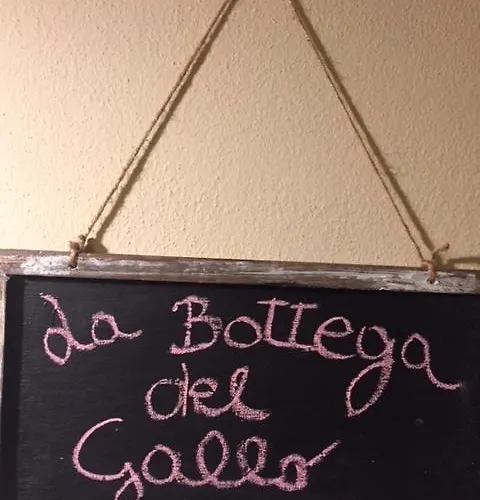 da Bottega
del
Gallo